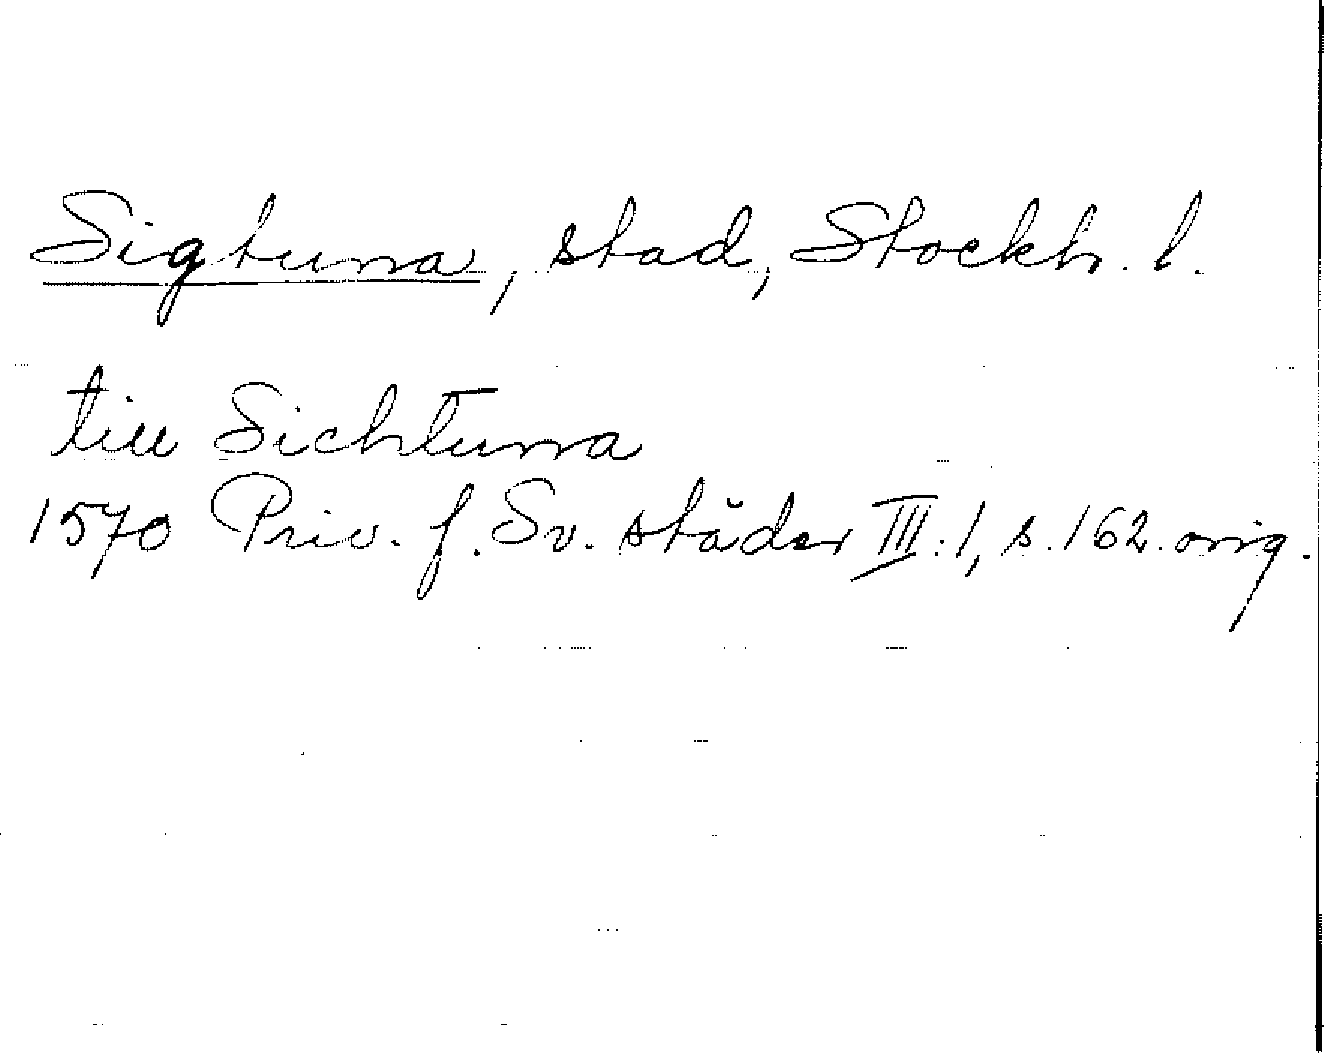 Sigtuna, stad, Stockh. l.
till Sichtuna
1570 Priv. f. Sv. städer III:1, s. 162. orig.